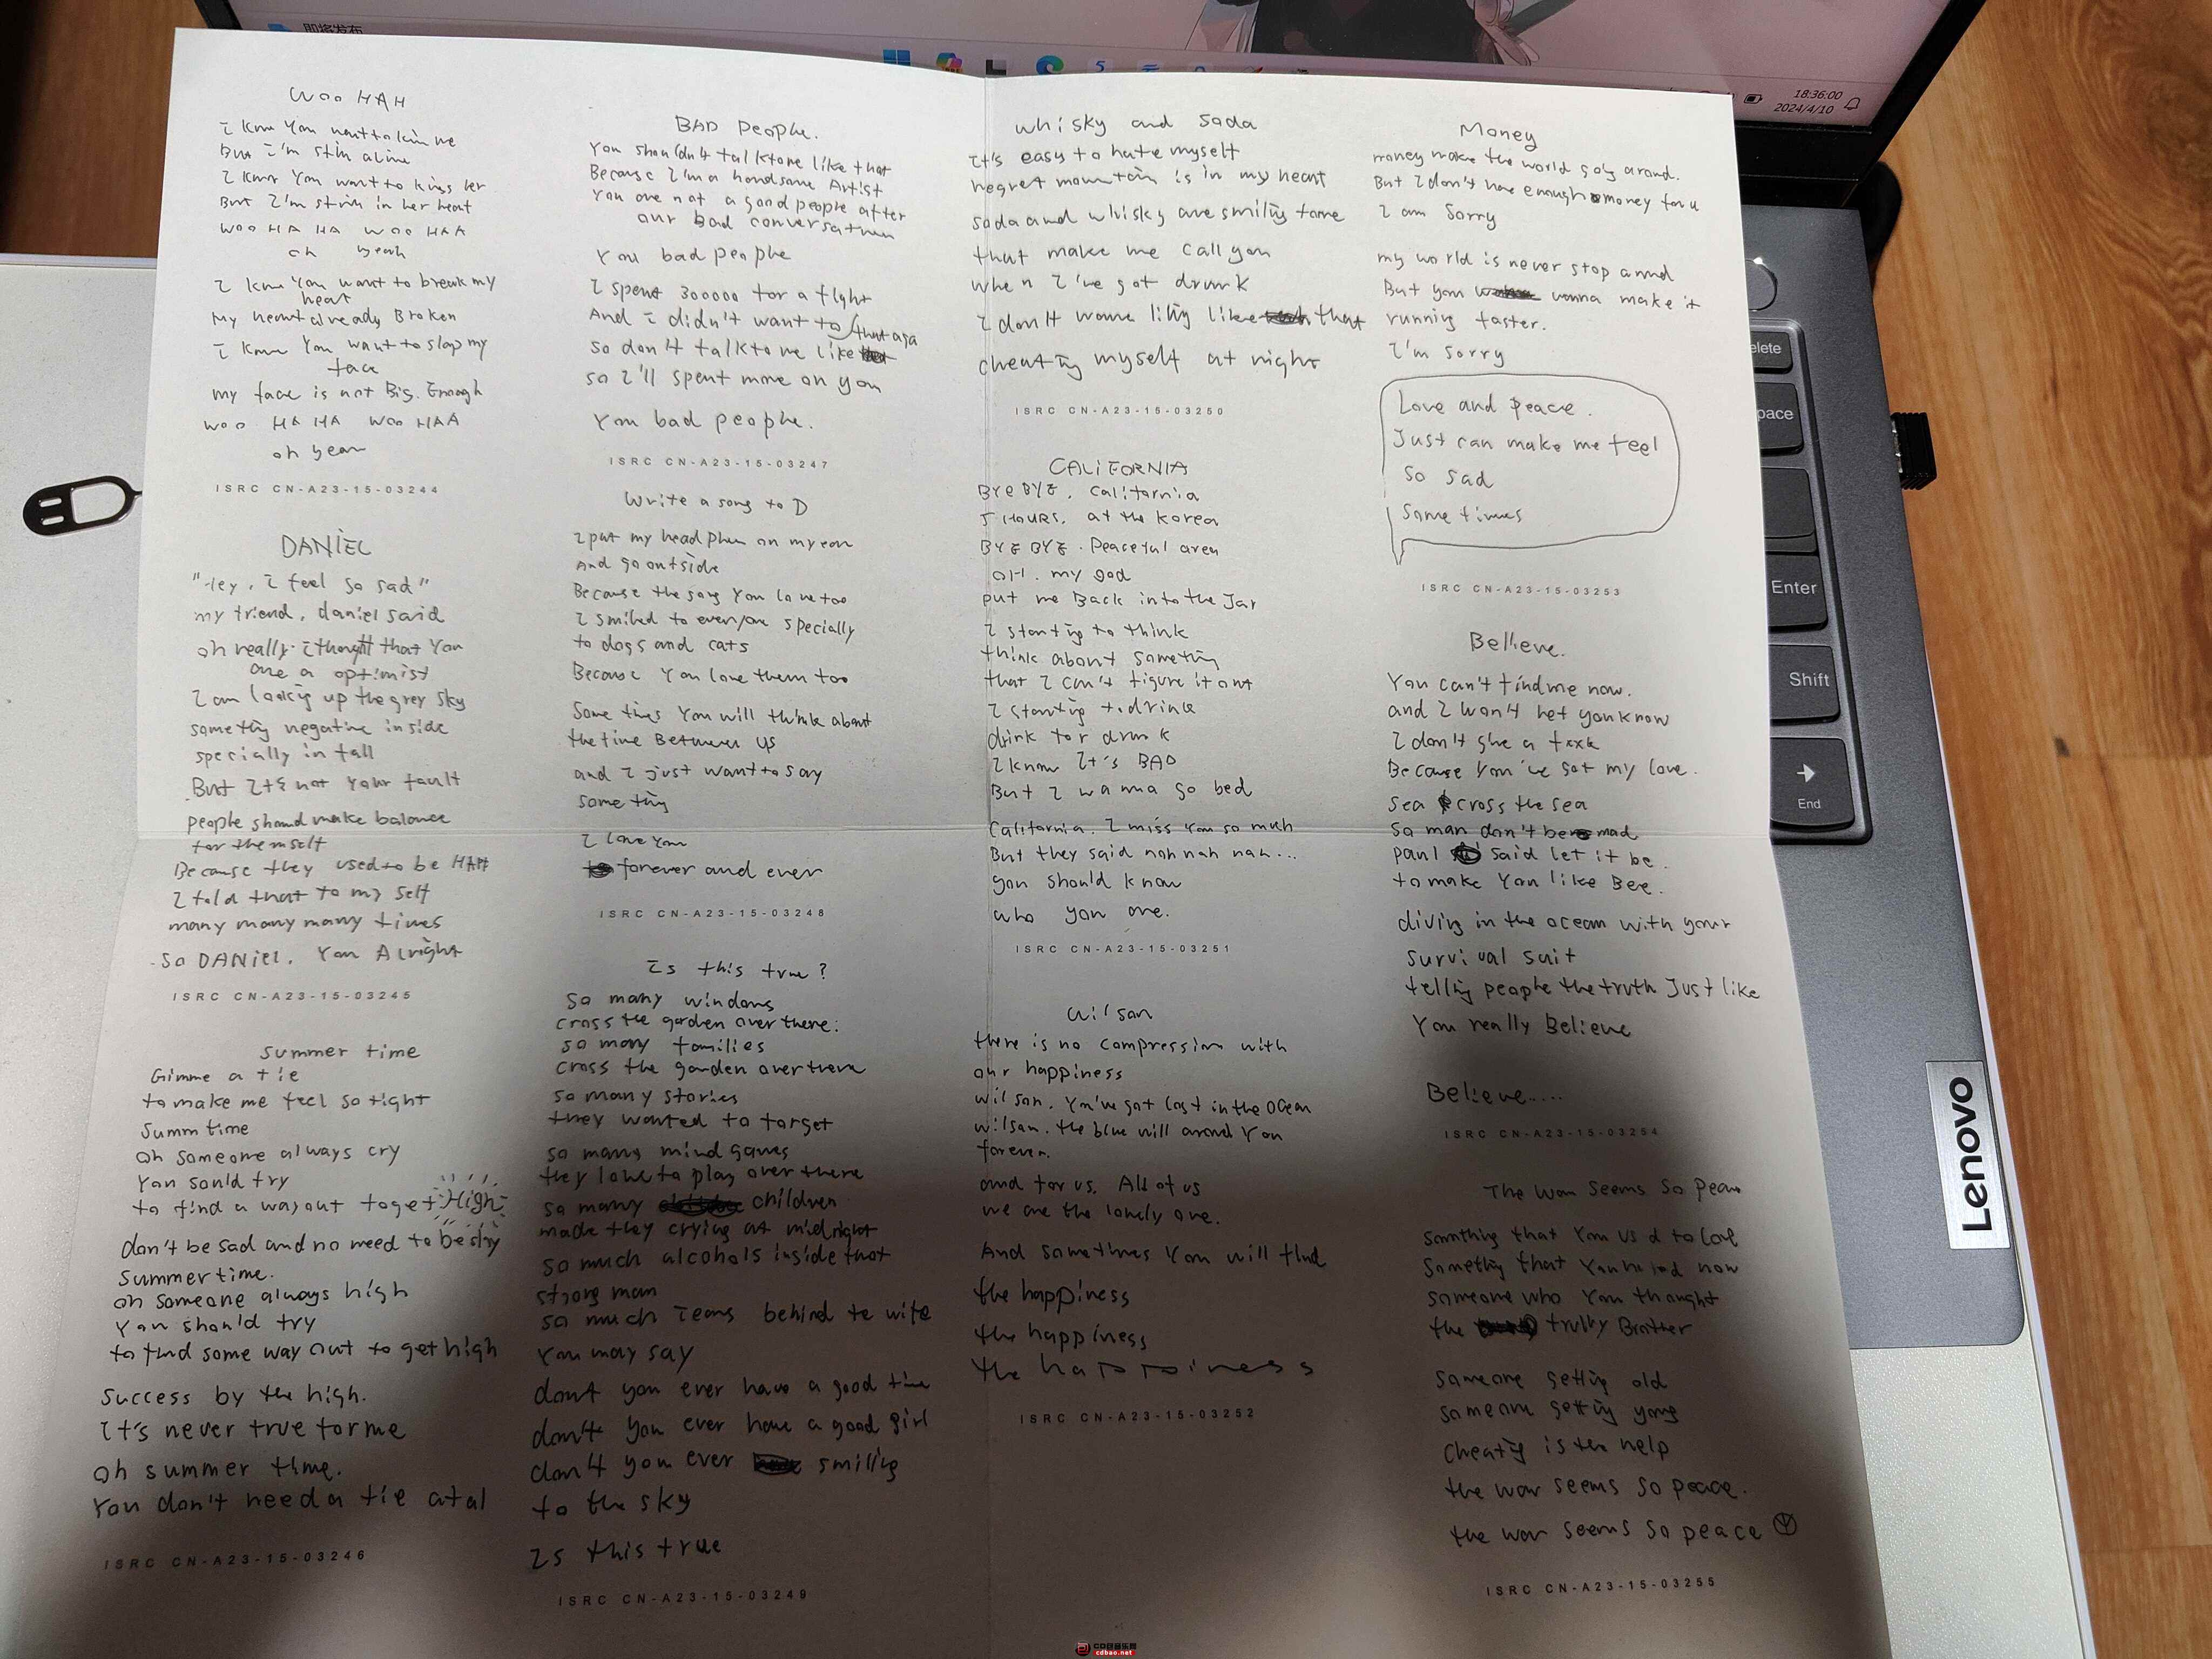 即将发布
18:36:00
2024/4/10
WOO HAH
But i'm still alive
I know You want to
But I'm still in her heart
WOO HA HA WOO HAA
oh yeah
I know You want to break my
heart
My heart already Broken
I know You want to slap my
face
my face is not Big Enough
WOO HA HA WOO HAA
oh yeah
ISRC CN-A23-15-03244
DANIEL
"Hey, I feel so sad"
my friend, daniel said
oh really. I thought that You
are a optimist
I am looking up the grey sky
something negative inside
specially in fall
But It's not Your fault
people should make balance
for themself
Because they used to be
I told that to my self
many many many times
So DANIEL, You Alright
ISRC CN-A23-15-03245
summer time
Gimme a tie
to make me feel so tight
Summ time
oh someone always cry
You sould try
to find a way out to get High
don't be sad and no need to be shy
summer time.
oh someone always high
You should try
to find some way out to get high
success by the high.
It's never true for me
oh summer time.
You don't need a tie atal
ISRC CN-A23-15-03246
BAD people.
You shouldn't talk to me like that
Because I'm a handsome Artist
You are not a good people after
our Bad conversation
You bad people
I spent 300000 for a flight
And i didn't want to that
so don't talk to me like
so I'll spent more on you
You bad people.
ISRC CN-A23-15-03247
Write a song to D
I put my head phone on my ear
And go outside
Because the song You love too
I smiled to everyone specially
to dogs and cats
Because You love them too
Some times You will think about
the time Between us
and I just want to say
some thing
I love You
forever and ever
ISRC CN-A23-15-03248
Is this true?
So many windows
cross the garden over there.
so many families
cross the garden over there
so many stories
they wanted to forget
so many mind games
they love to play over there
so many children
made they crying at midnight
so much alcohols inside that
strong man
so much Tears behind te wife
You may say
don't you ever have a good time
don't you ever have a good girl
don't you ever smiling
to the sky
Is this true
ISRC CN-A23-15-03249
whisky and soda
It's easy to hate myself
regret mountain is in my heart
soda and whisky are smiling to me
that make me call you
when I've got drunk
I don't wanna living like that
cheating myself at night
ISRC CN-A23-15-03250
CALiFORNIA
BYE BYE. California
5 HOURS. at the korea
BYE BYE. Peaceful area
OH. my god
put me Back into the Jar
I starting to think
think about something
that I can't figure it out
I starting to drink
drink for drunk
I know It's BAD
But I wanna go bed
California. I miss You so much
But they said nah nah nah...
you should know
who you are.
ISRC CN-A23-15-03251
wilson
there is no compression with
our happiness
wilson. You've got lost in the ocean
wilson. the blue will around You
forever.
and for us. All of us
we are the lonely one.
And sometimes You will find
the happiness
the happiness
the happiness
ISRC CN-A23-15-03252
Money
money make the world going around.
But I don't have enough money for u
I am Sorry
my world is never stop around
But you wanna make it
running faster.
I'm sorry
Love and peace.
Just can make me feel
so sad
Sometimes
ISRC CN-A23-15-03253
Believe.
You can't find me now.
and I won't let you know
I don't give a fxxk
Because You've got my love.
sea cross the sea
so man don't be mad
paul said let it be.
to make You like Bee.
diving in the ocean with your
survival suit
telling people the truth Just like
You really Believe
Believe.....
ISRC CN-A23-15-03254
The War Seems So Peace
Somthing that You used to Love
Something that You now
someone who You thought
the Brother
someone getting old
someone getting yong
cheating is the help
the war seems so peace.
the war seems so peace
ISRC CN-A23-15-03255
Delete
Enter
Shift
End
Lenovo
CD包音乐网
cdbao.net